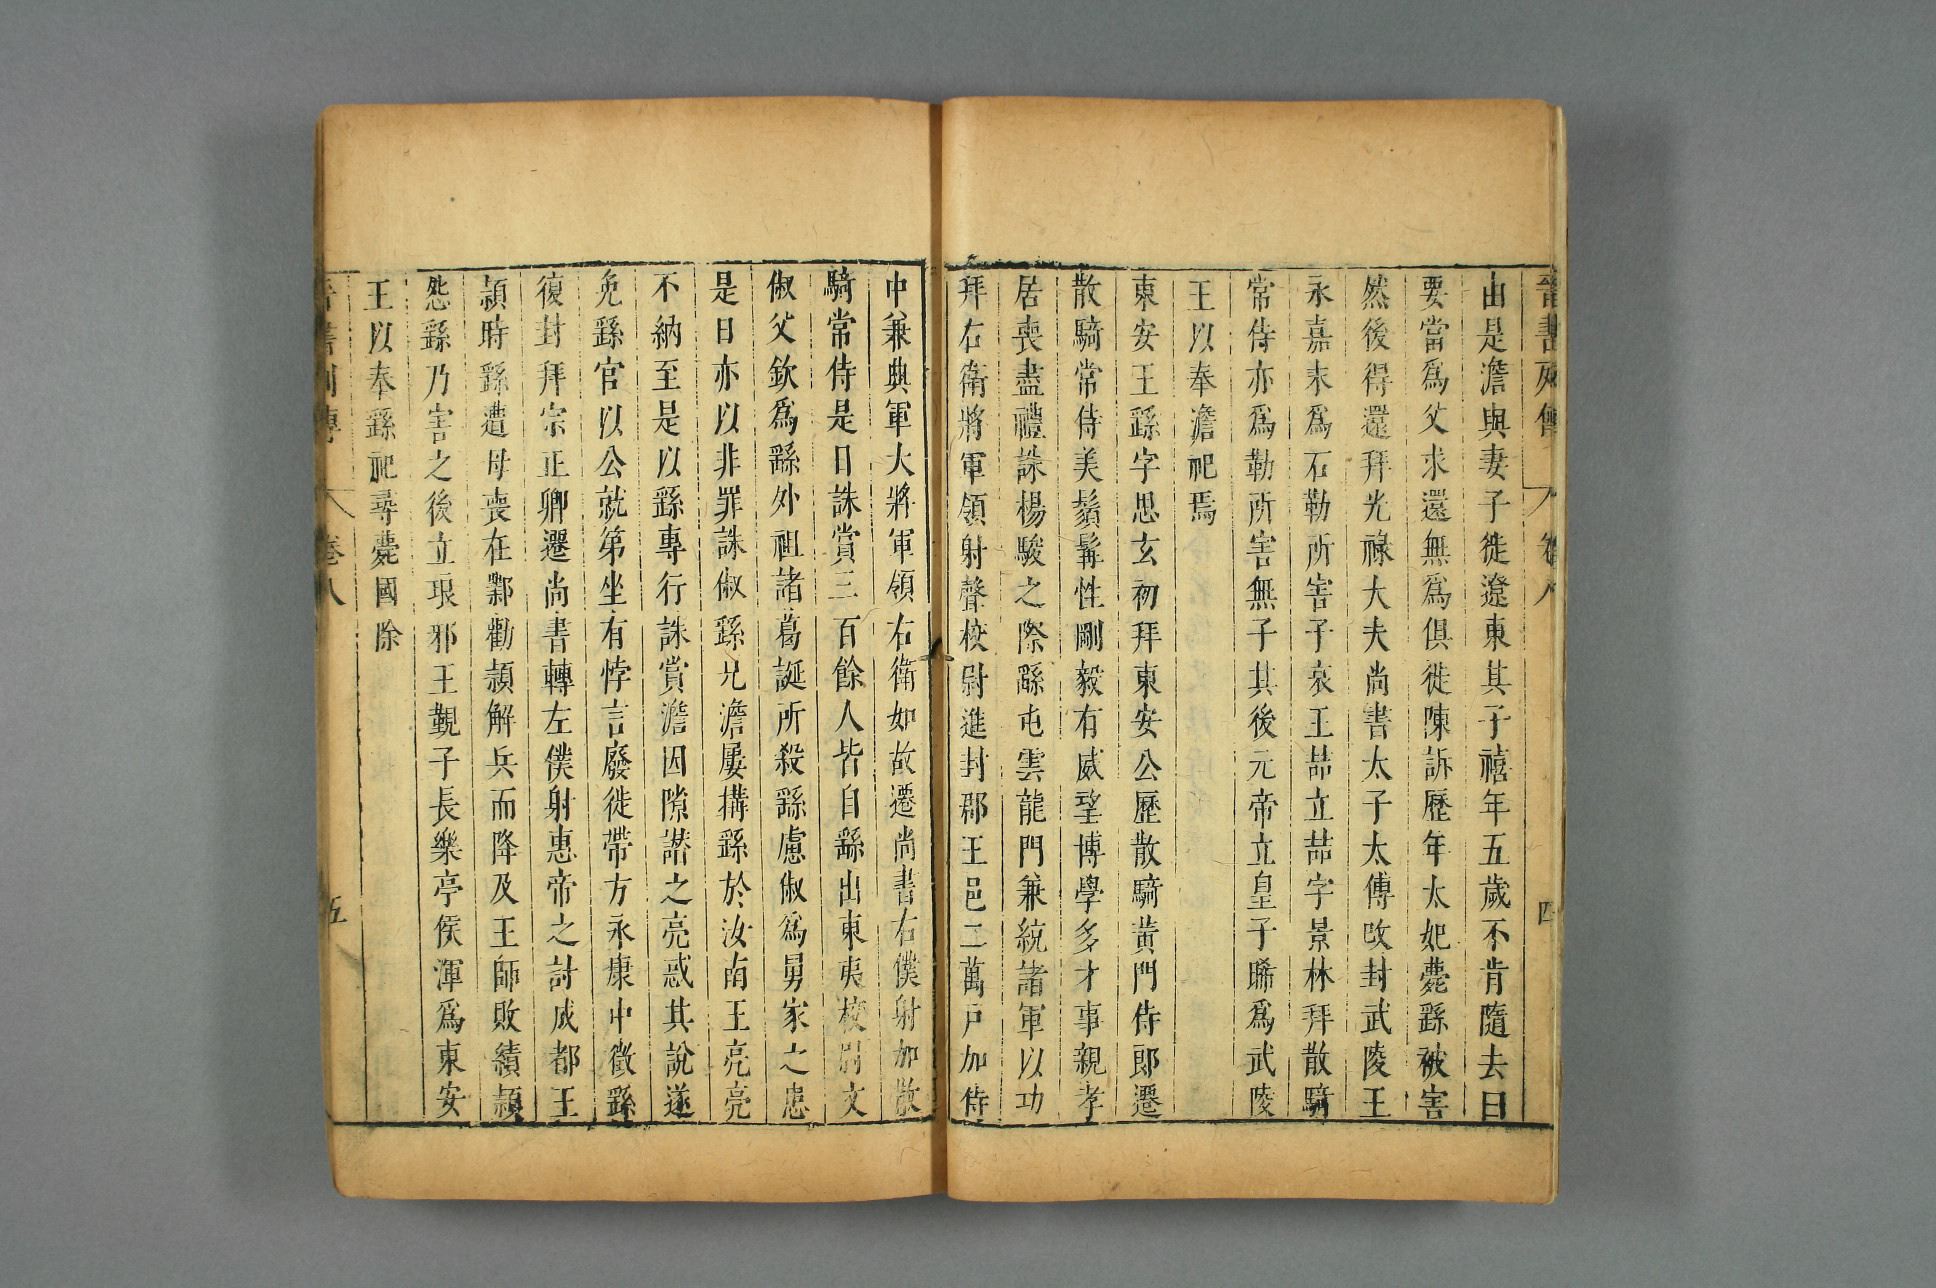 晉書列傳 卷八 四
由是澹與妻子徙遼東其子禧年五歲不肯隨去曰
要當爲父求還無爲俱徙陳訴歷年太妃薨繇被害
然後得還拜光祿大夫尚書太子太傅改封武陵王
永嘉末爲石勒所害子哀王喆立喆字景林拜散騎
常侍亦爲勒所害無子其後元帝立皇子晞爲武陵
王以奉澹祀焉
東安王繇字思玄初拜東安公歷散騎黃門侍郎遷
散騎常侍美鬚髯性剛毅有威望博學多才事親孝
居喪盡禮誅楊駿之際繇屯雲龍門兼統諸軍以功
拜右衛將軍領射聲校尉進封郡王邑二萬戶加侍
中兼典軍大將軍領右衛如故遷尚書右僕射加散
騎常侍是日誅賞三百餘人皆自繇出東夷校尉文
俶父欽爲繇外祖諸葛誕所殺繇慮俶爲舅家之患
是日亦以非罪誅俶繇兄澹屢搆繇於汝南王亮亮
不納至是以繇專行誅賞澹因隙譖之亮惑其說遂
免繇官以公就第坐有悖言廢徙帶方永康中徵繇
復封拜宗正卿遷尚書轉左僕射惠帝之討成都王
穎時繇遭母喪在鄴勸穎解兵而降及王師敗績穎
怨繇乃害之後立琅邪王覲子長樂亭侯渾爲東安
王以奉繇祀尋薨國除
晉書列傳 卷八 五